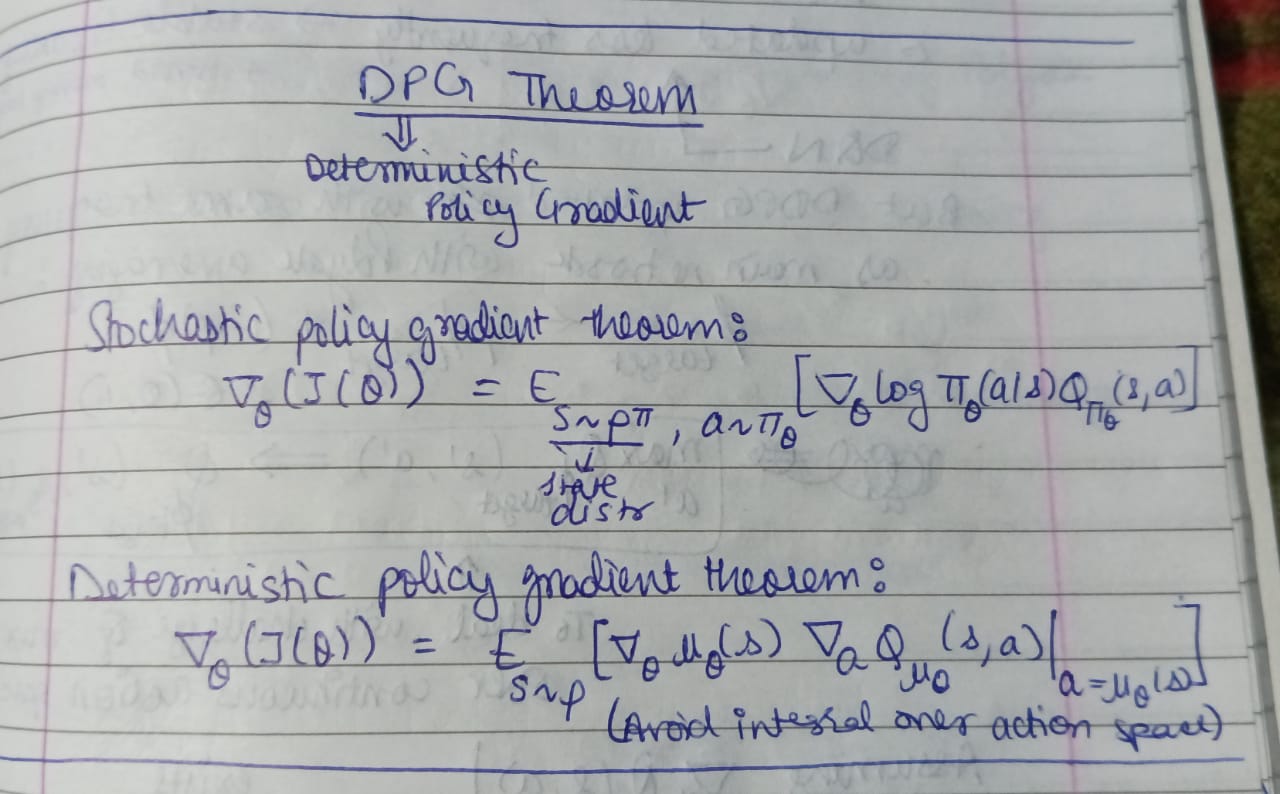 DPG Theorem
⇓
Deterministic
Policy Gradient
Stochastic policy gradient theorem:
∇_θ (J(θ)) = E_{s~ρ^π, a~π_θ} [∇_θ log π_θ(a|s) Q_{π_θ}(s,a)]
↓
state
distr
Deterministic policy gradient theorem:
∇_θ (J(θ)) = E_{s~ρ} [∇_θ μ_θ(s) ∇_a Q_{μ_θ}(s,a)|_{a=μ_θ(s)}]
(Avoid integral over action space)